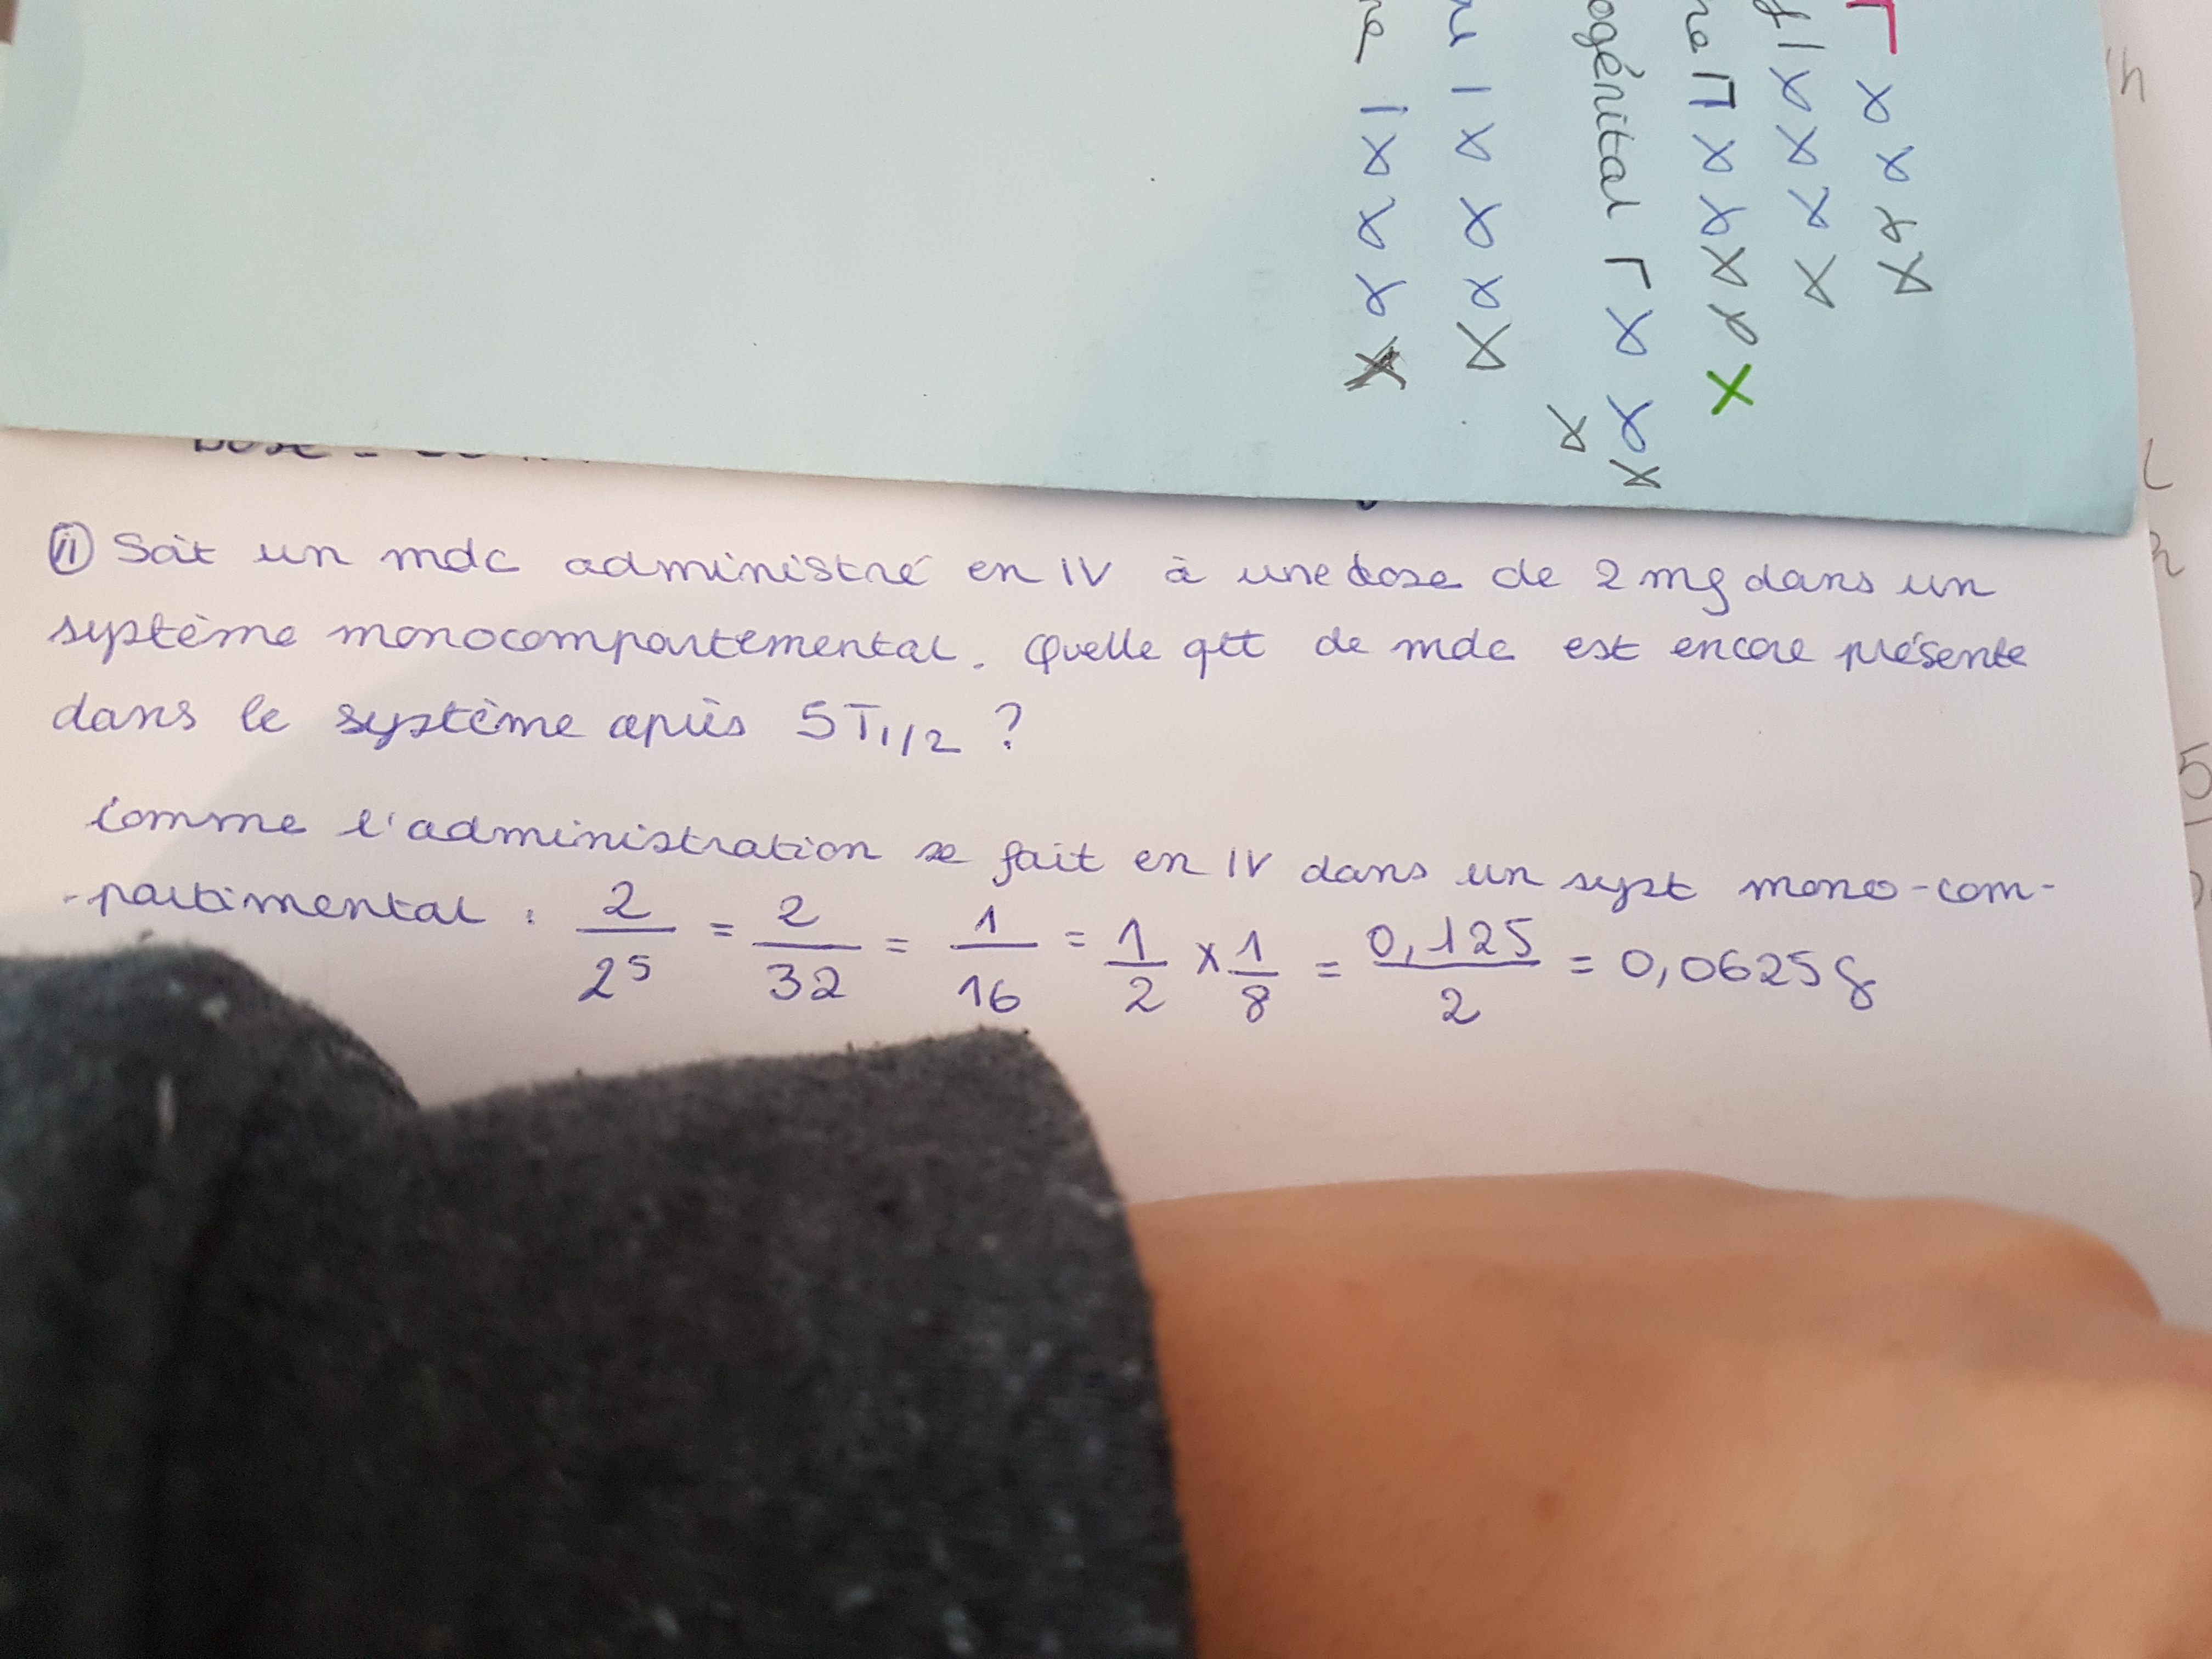 ogénital
⑪ Soit un mdc administré en IV à une dose de 2 mg dans un
système monocompartemental. Quelle qtt de mdc est encore présente
dans le système après 5T1/2 ?
Comme l'administration se fait en IV dans un syst mono-com-
-partimental : 2/2⁵ = 2/32 = 1/16 = 1/2 x 1/8 = 0,125/2 = 0,0625 g